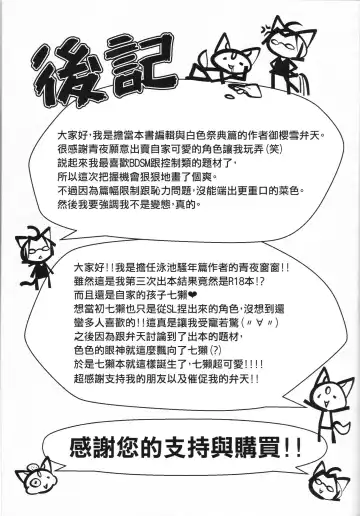 後記
大家好,我是擔當本書編輯與白色祭典篇的作者御櫻雪弁天。
很感謝青夜願意出賣自家可愛的角色讓我玩弄(笑)
說起來我最喜歡BDSM跟控制類的題材了,
所以這次把握機會狠狠地畫了個爽。
不過因為篇幅限制跟恥力問題,沒能端出更重口的菜色。
然後我要強調我不是變態,真的。
大家好!!我是擔任泳池騷年篇作者的青夜窗窗!!
雖然這是我第三次出本結果竟然是R18本!?
而且還是自家的孩子七獺❤
想當初七獺也只是從SL捏出來的角色,沒想到還
蠻多人喜歡的!!這真是讓我受寵若驚(〃∀〃)
之後因為跟弁天討論到了出本的題材,
色色的眼神就這麼飄向了七獺(?)
於是七獺本就這樣誕生了,七獺超可愛!!!!
超感謝支持我的朋友以及催促我的弁天!!
感謝您的支持與購買!!